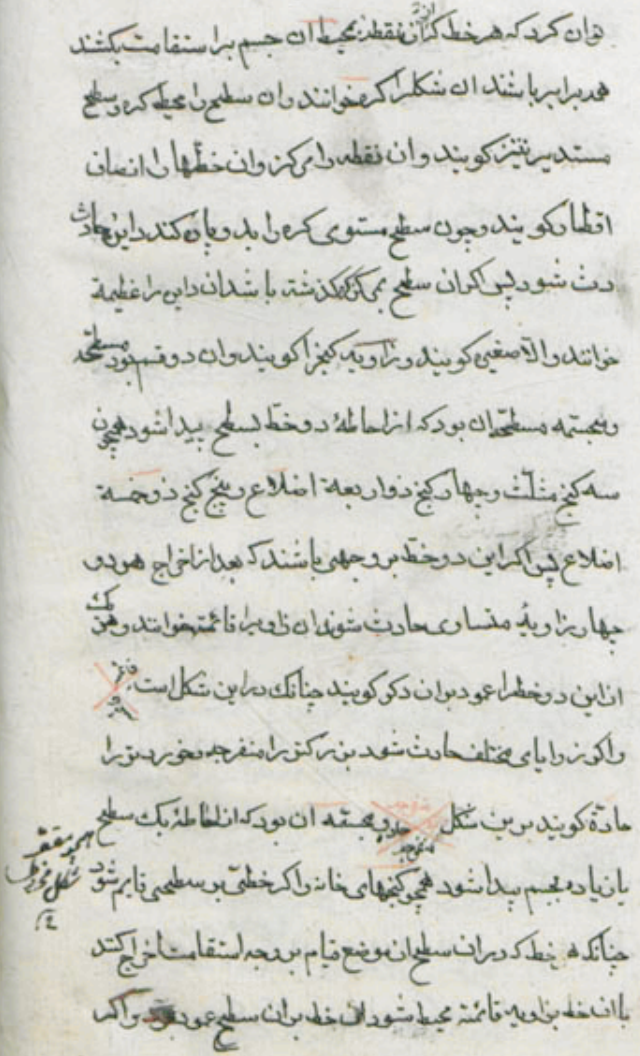 توان کرد که هر خط کزان نقطه بمحیط ان جسم براستقامت بکشند
همه برابر باشند ان شکلرا کره خوانند وان سطح را محیط کره و سطح
مستدیر نیز کویند وان نقطه را مرکز وان خطها را انصاف
اقطار کویند وچون سطح مستوی کره را بدو پاره کند دایره حادث
شود پس اکر ان سطح بمرکز کره کذشته باشد ان دایره را عظیمه
خوانند والا صغیره کویند وزاویه کنج را کویند وان دو قسم بود مسطحه
ومجسمه مسطحه ان بود که از احاطهٔ دو خط بسطح پیدا شود همچون
سه کنج مثلث وچهار کنج ذو اربعة اضلاع وپنج کنج ذو خمسة
اضلاع پس اکر این دو خط بر وجهی باشند که بعد از اخراج هر دو
چهار زاویهٔ متساوی حادث شوند ان زاویه را قائمه خوانند وهر یک
ازین دو خط را عمود بران دکر کویند چنانک در این شکل است
واکر زوایای مختلف حادث شود بزرکتر را منفرجه وخوردتر را
حادّه کویند برین شکل ومجسمه ان بود که از احاطهٔ یک سطح
یا زیاده بجسم پیدا شود همچو کنجهای خانه واکر خطی بر سطحی قایم شود
چنانکه هر خط که در ان سطح از موضع قیام بر وجه استقامت اخراج کنند
با ان خط بزاویه قائمه محیط شود ان خط بران سطح عمود بود واکر